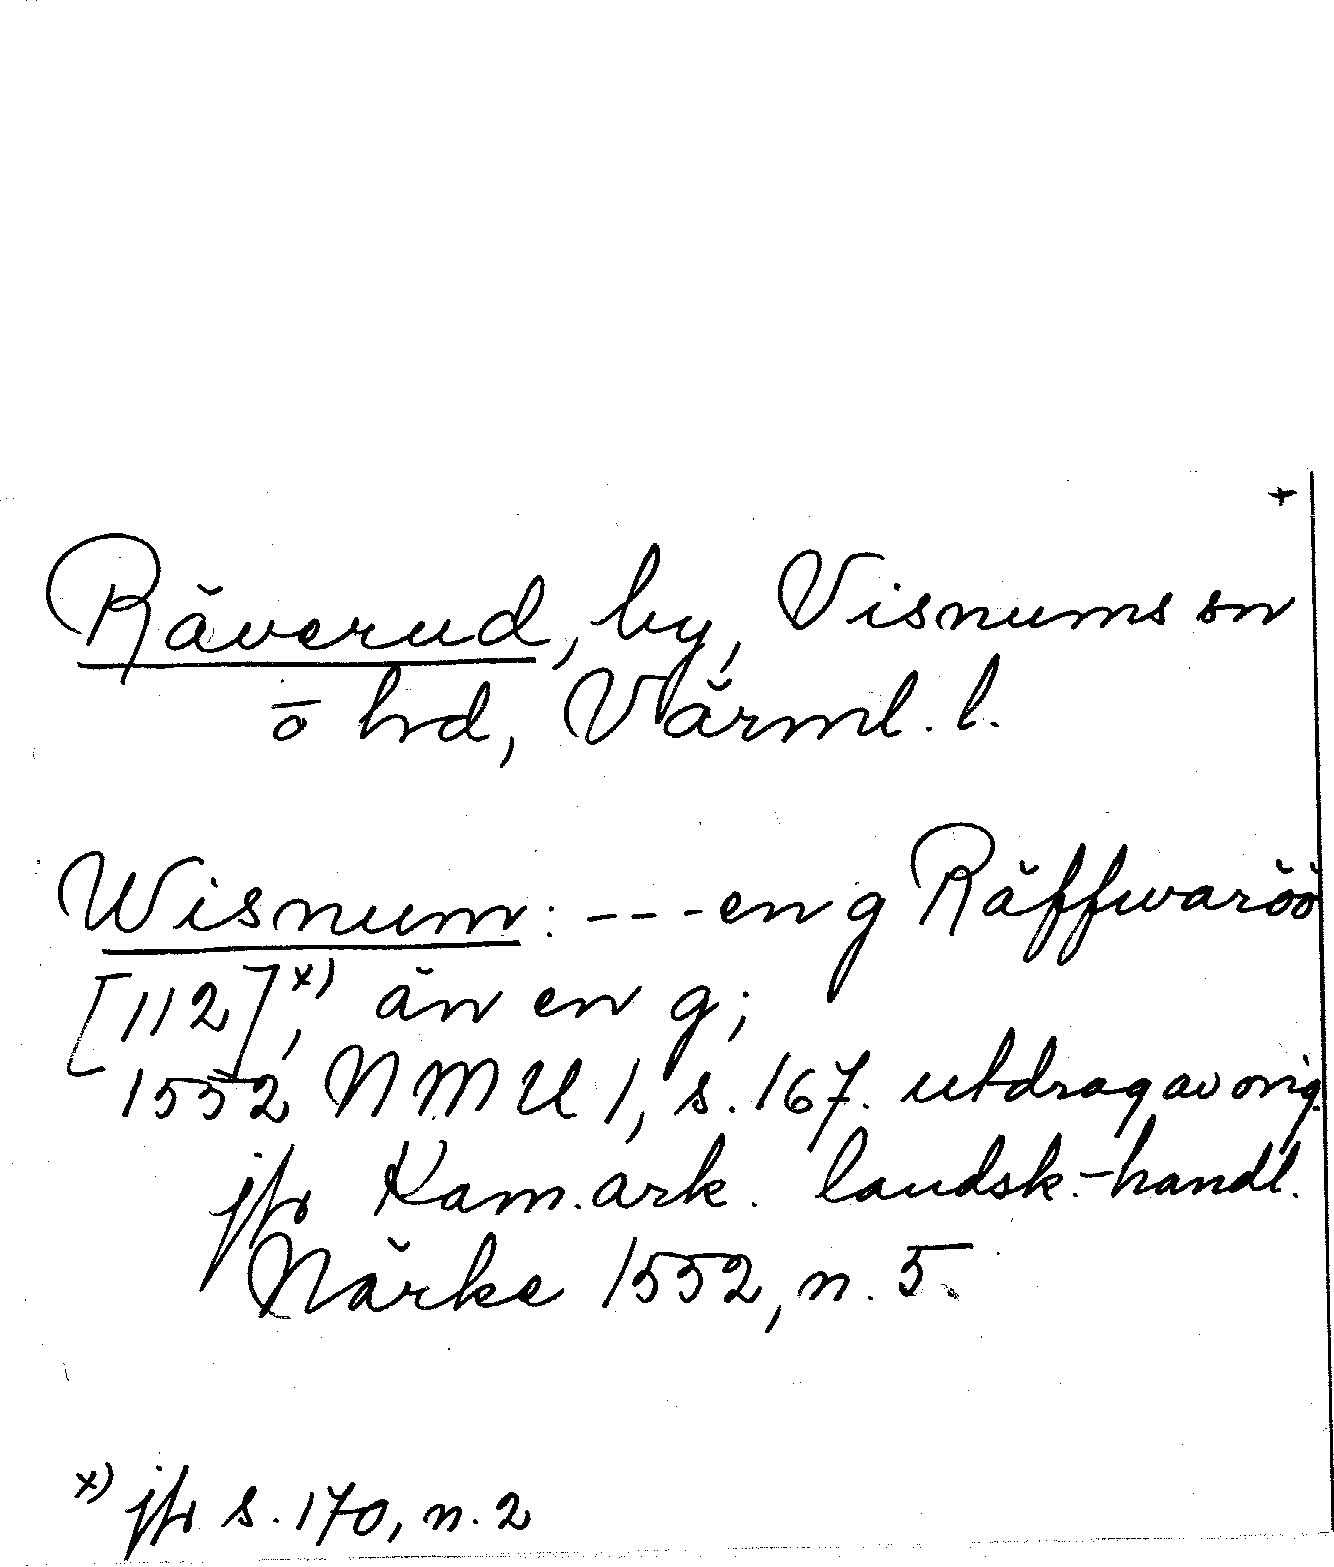 +
Räverud, by, Visnums sn
o hd, Värml. l.
Wisnum: --- en g Räffwaröö
[112],x) än en g;
1552 NMU 1, s. 167. utdrag av orig.
jfr Kam.ark. landsk.-handl.
Närke 1552, n. 5.
x) jfr s. 170, n. 2